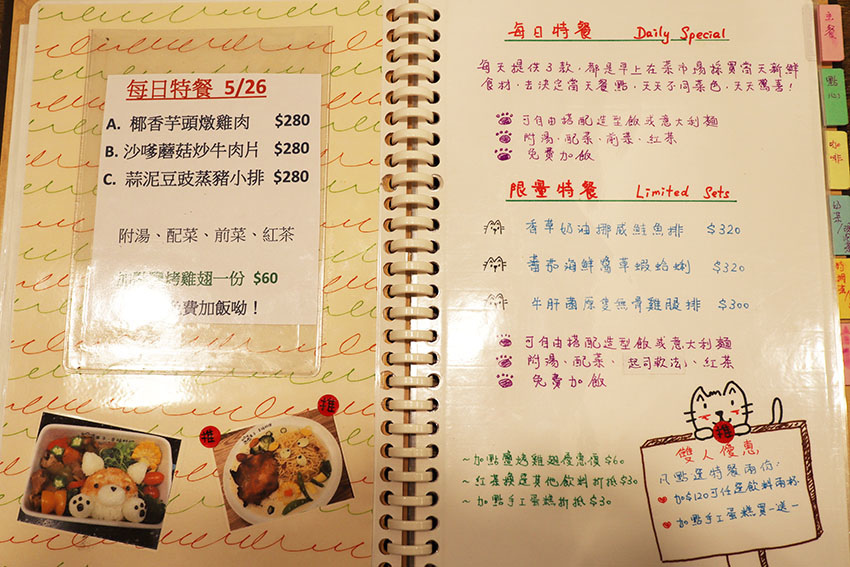 每日特餐 5/26
A. 椰香芋頭燉雞肉 $280
B. 沙嗲蘑菇炒牛肉片 $280
C. 蒜泥豆豉蒸豬小排 $280
附湯、配菜、前菜、紅茶
烤雞翅一份 $60
費加飯呦！
推
推
每日特餐 Daily Special
每天提供3款，都是早上在菜市場採買當天新鮮
食材，去決定當天餐點，天天不同菜色，天天驚喜！
可自由搭配造型飯或意大利麵
附湯、配菜、前菜、紅茶
免費加飯
限量特餐 Limited Sets
香草奶油挪威鮭魚排 $320
番茄海鮮醬草蝦蛤蜊 $320
牛肝菌厚隻無骨雞腿排 $300
可自由搭配造型飯或意大利麵
附湯、配菜、起司軟法、紅茶
免費加飯
~加點鹽烤雞翅優惠價$60
~紅茶換其他飲料折抵$30
~加點手工蛋糕折抵$30
推
雙人優惠
凡點選特餐兩份：
加$120可任選飲料兩杯
加點手工蛋糕買一送一
主餐
點心
咖啡